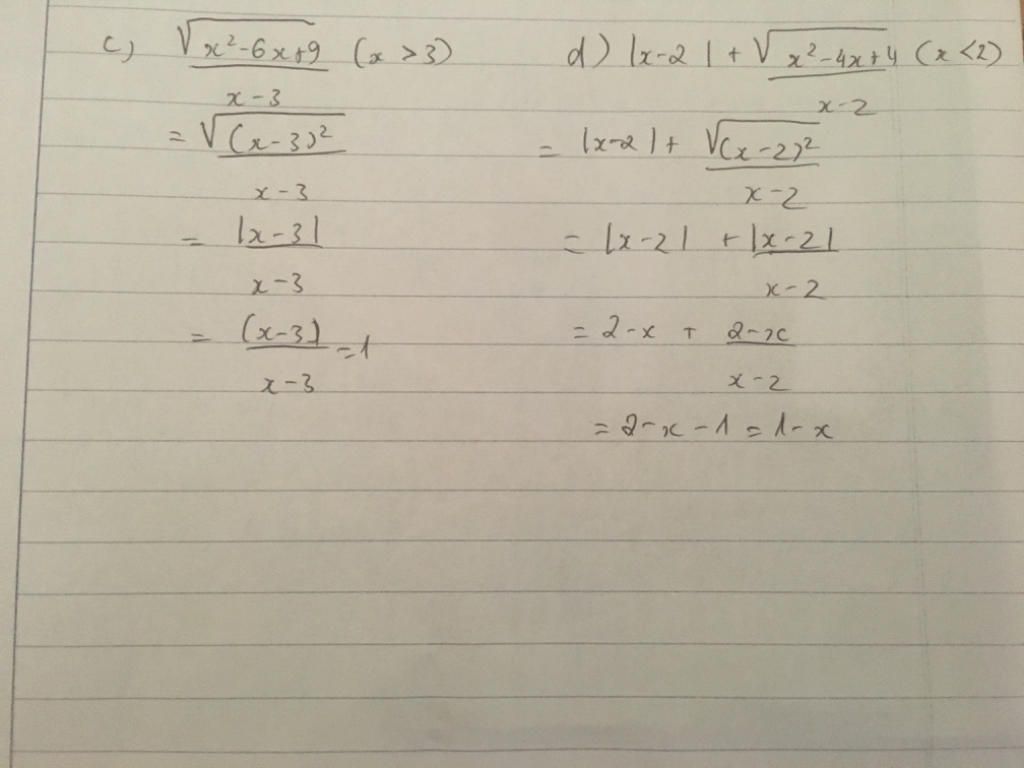 c) √x²-6x+9 (x > 3)
x-3
= √(x-3)²
x-3
= |x-3|
x-3
= (x-3) = 1
x-3
d) |x-2| + √x²-4x+4 (x < 2)
x-2
= |x-2| + √(x-2)²
x-2
= |x-2| + |x-2|
x-2
= 2-x + 2-x
x-2
= 2-x-1 = 1-x